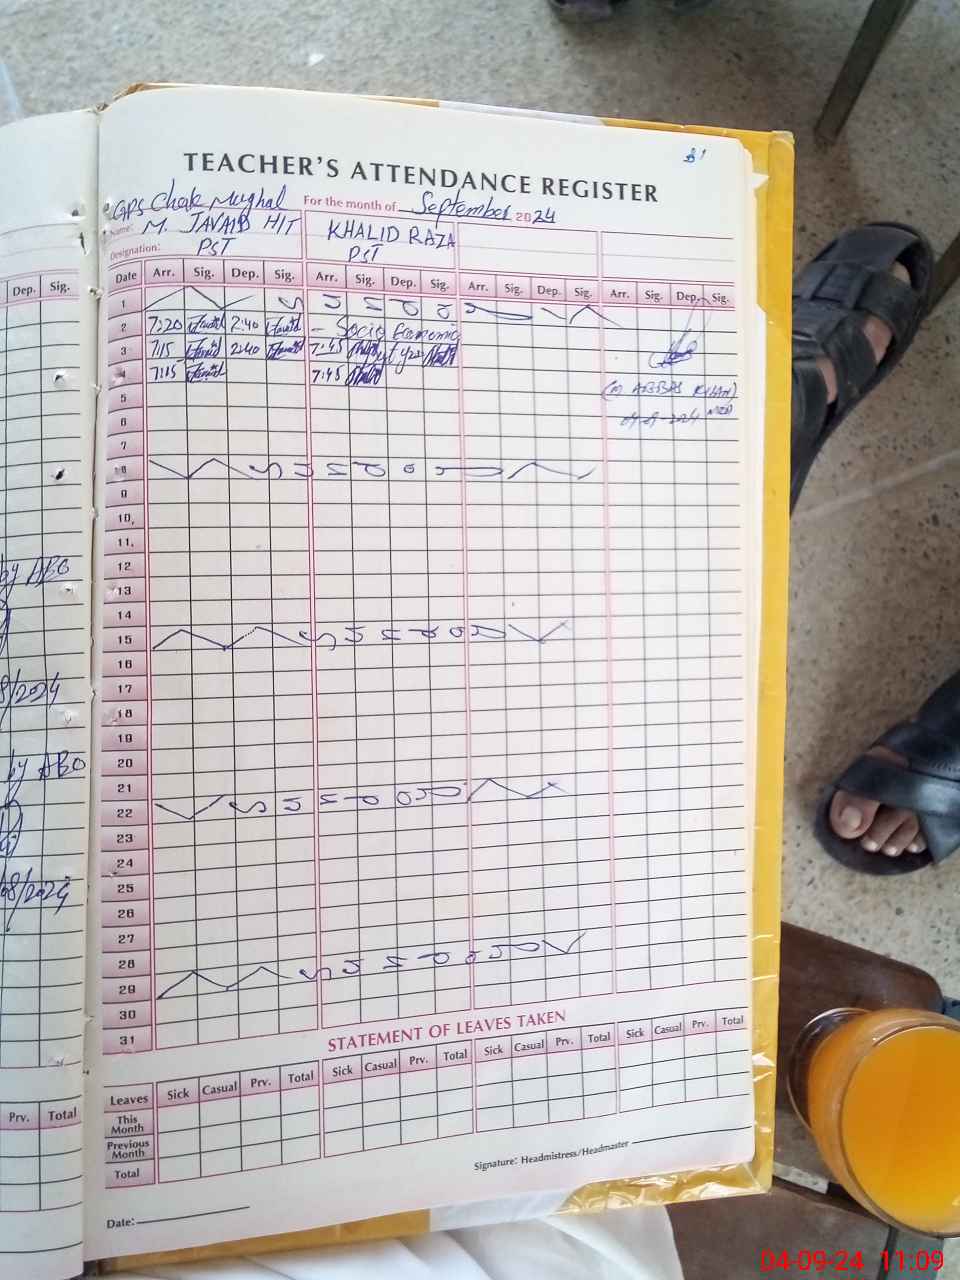 81
TEACHER'S ATTENDANCE REGISTER
GPS Chak Mughal For the month of September 2024
Name: M. JAVAID H/T KHALID RAZA
Designation: PST PST
Date Arr. Sig. Dep. Sig. Arr. Sig. Dep. Sig. Arr. Sig. Dep. Sig. Arr. Sig. Dep. Sig.
1 S U N D A
2 7:20 Javaid 2:40 Javaid - Socio Economic
3 7:15 Javaid 2:40 Javaid 7:45
4 7:15 Javaid 7:45
5 (M ABBAS KHAN)
6 04-09-2024
7
8 S U N D A Y
9
10,
11,
12
13
14
15 S U N D A Y
16
17
18
19
20
21
22 S U N D A Y
23
24
25
26
27
28
29 S U N D A Y
30
31
STATEMENT OF LEAVES TAKEN
Leaves Sick Casual Prv. Total Sick Casual Prv. Total Sick Casual Prv. Total Sick Casual Prv. Total
This Month
Previous Month
Total
Signature: Headmistress/Headmaster
Date:
Dep. Sig.
by ABO
8/2024
by ABO
08/2024
Prv. Total
04-09-24 11:09